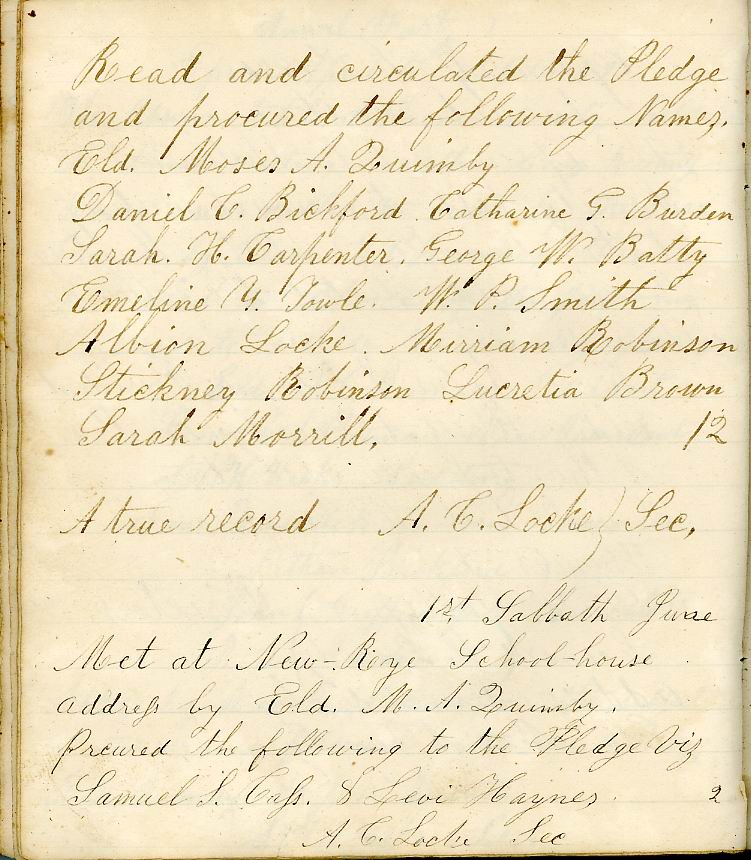 Read and circulated the Pledge
and procured the following Names.
Eld. Moses A. Quimby
Daniel C. Bickford Catharine G. Burden
Sarah. H. Carpenter. George W. Batty
Emeline Y. Towle. W. P. Smith
Albion Locke. Mirriam Robinson
Stickney Robinson Lucretia Brown
Sarah Morrill. 12
A true record A. C. Locke) Sec.
1st Sabbath June
Met at New-Rye School-house
address by Eld. M. A. Quimby.
Procured the following to the Pledge Viz
Samuel S. Cass. & Levi Haynes 2
A. C. Locke Sec